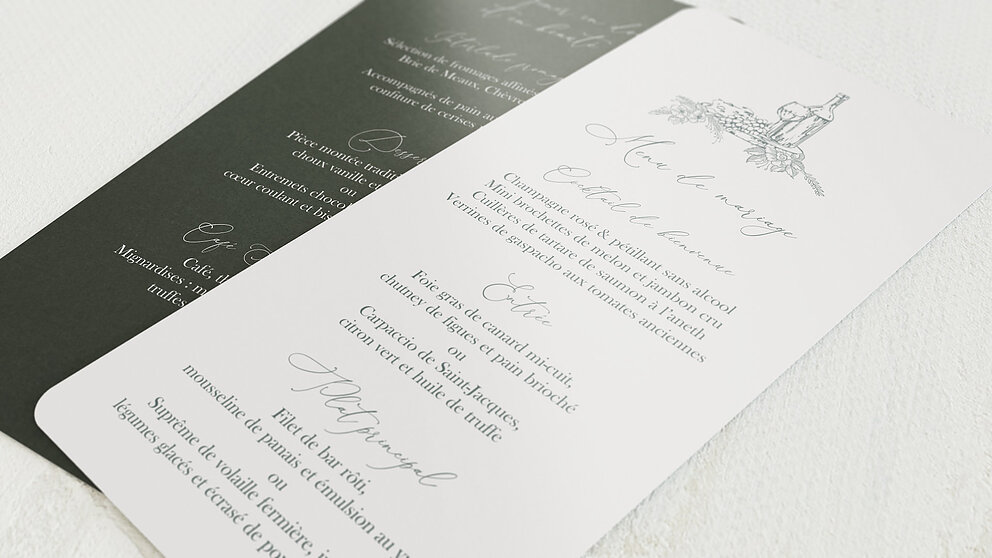 Menu de mariage
Cocktail de bienvenue
Champagne rosé & pétillant sans alcool
Mini brochettes de melon et jambon cru
Cuillères de tartare de saumon à l'aneth
Verrines de gaspacho aux tomates anciennes
Entrée
Foie gras de canard mi-cuit,
chutney de figues et pain brioché
ou
Carpaccio de Saint-Jacques,
citron vert et huile de truffe
Plat principal
Filet de bar rôti,
mousseline de panais et émulsion au
ou
Suprême de volaille fermière,
légumes glacés et écrasé de
Sélection de fromages affinés
Brie de Meaux, Chèvre
Accompagnés de pain au
confiture de cerises
Pièce montée
choux vanille et
ou
Entremets
cœur coulant et
Café
Café,
Mignardises :